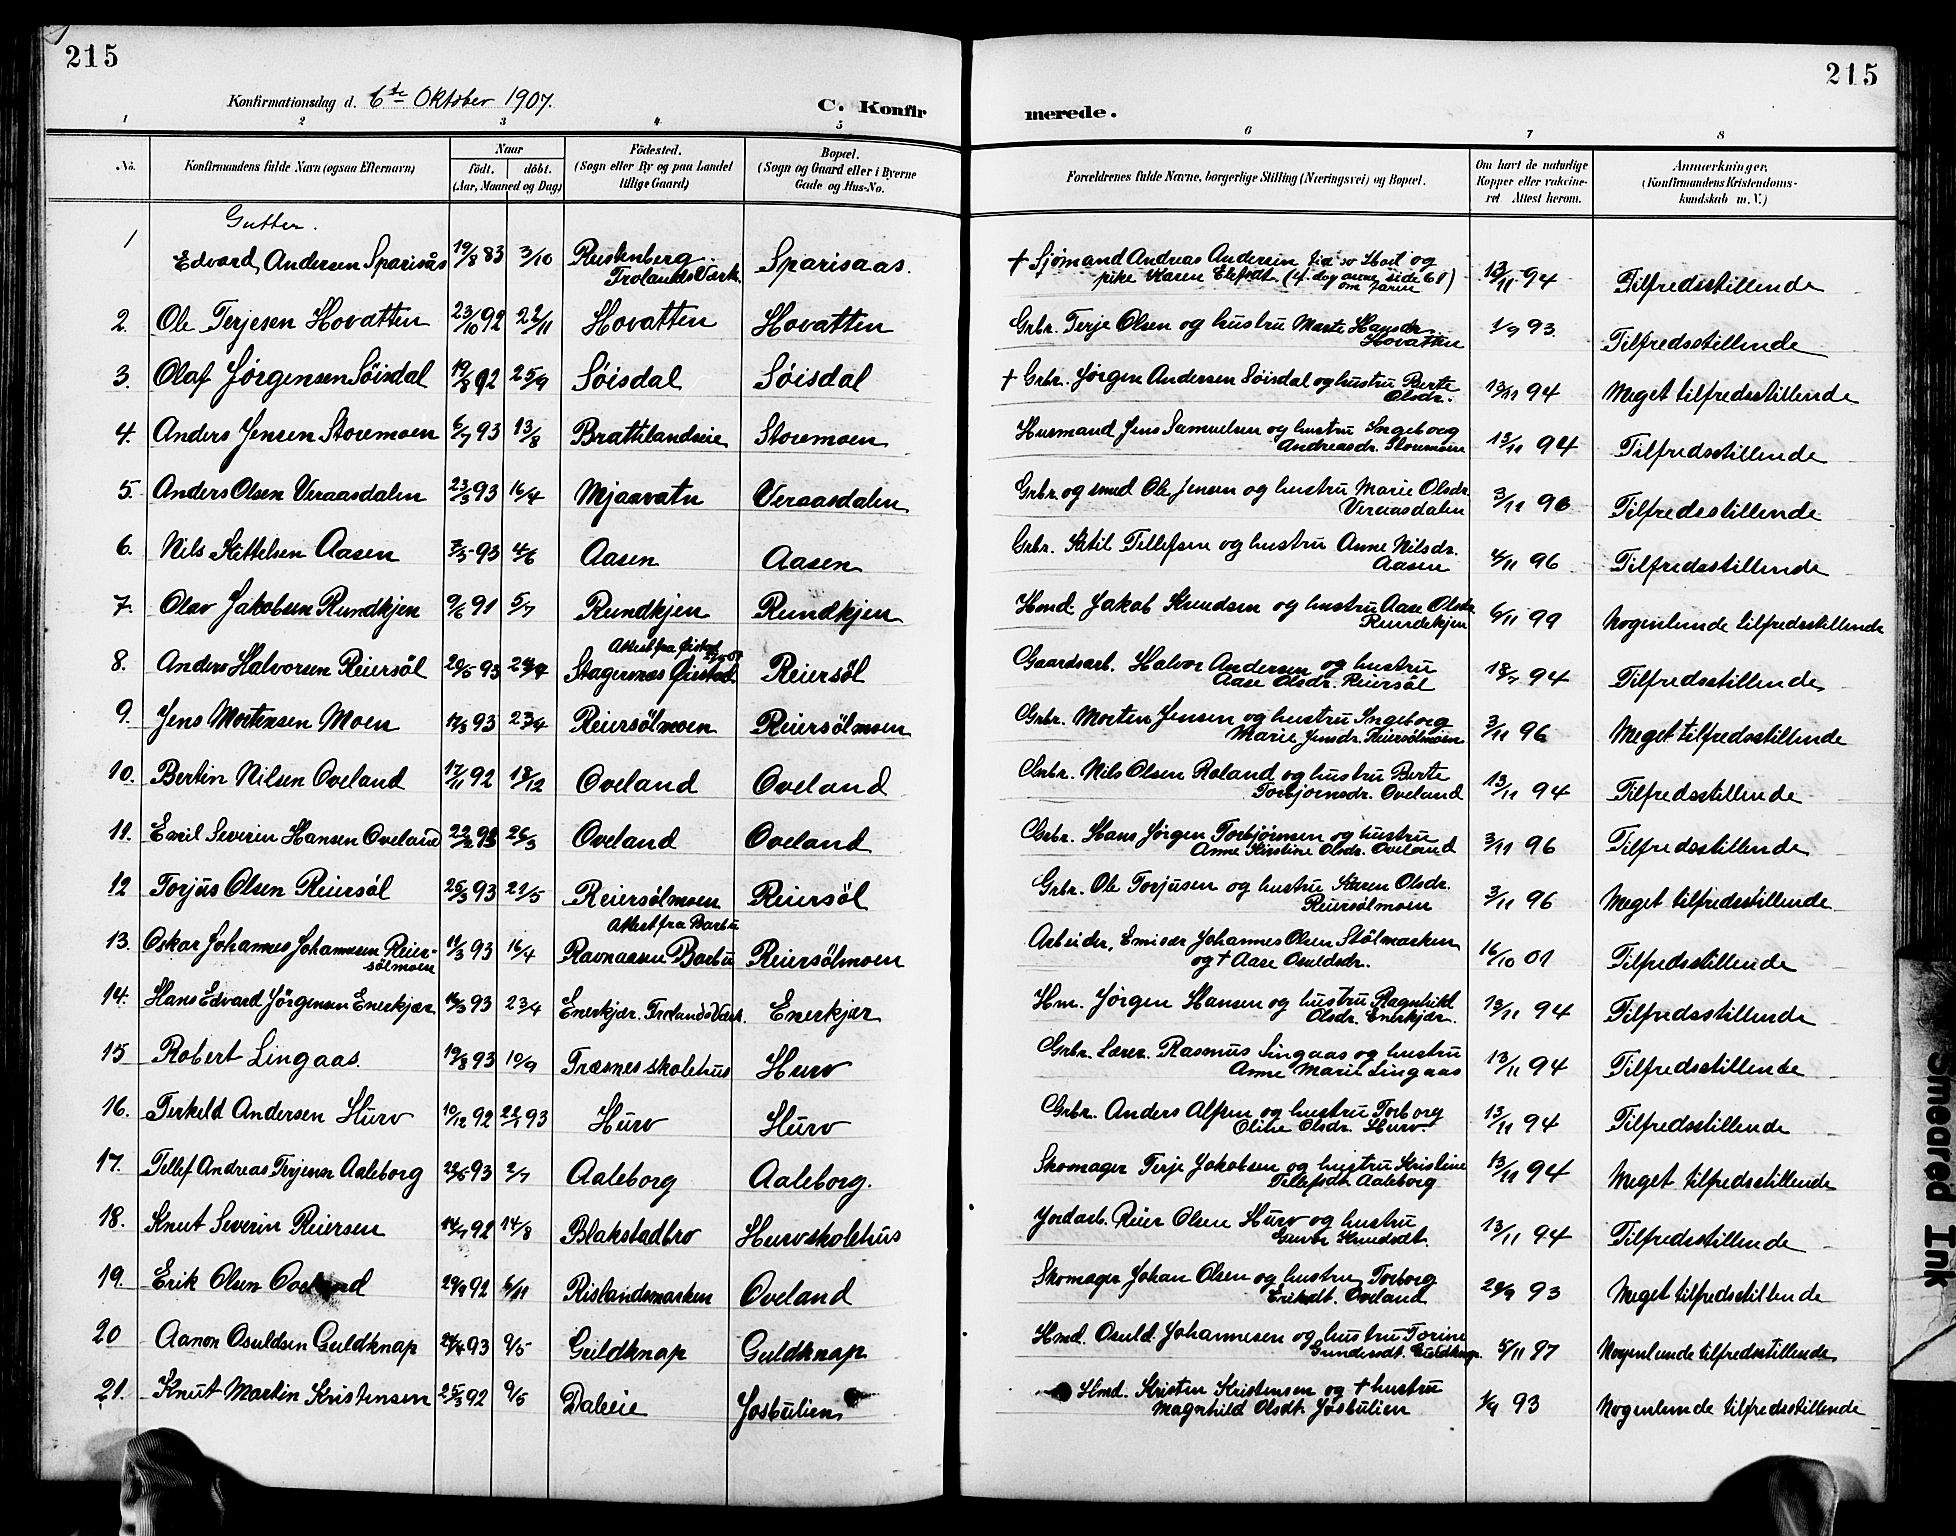 215
215
Konfirmationsdag d. 6te Oktober 1907.
C. Konfir
merede.
1 2 3 4 5 6 7 8
No.
Konfirmandens fulde Navn (ogsaa Efternavn)
Naar
födt. döbt.
(Aar, Maaned og Dag)
Födested.
(Sogn eller By og paa Landet
tillige Gaard)
Bopæl.
(Sogn og Gaard eller i Byerne
Gade og Hus-No.
Forældrenes fulde Navne, borgerlige Stilling (Næringsvei) og Bopæl.
Om havt de naturlige
Kopper eller vakcine-
ret Attest herom.
Anmærkninger.
(Konfirmandens Kristendoms-
kundskab m. V.)
Gutter.
1 Edvard Andersen Sparisås 19/8 83 3/10 Rustenberg Trolands Værk. Sparisaas. † Sjømand Andreas Andersen og
pike Karen Elefsdt. 13/11 94 Tilfredsstillende
2. Ole Terjesen Hovatten 23/10 92 22/11 Hovatten Hovatten Grbr. Terje Olsen og hustru Marte Hansdr.
Hovatten 1/9 93. Tilfredsstillende
3. Olaf Jørgensen Söisdal 19/8 92 25/9 Söisdal Söisdal † Grbr. Jørgen Andersen Söisdal og hustru Berte
Olsdr. 13/11 94 Meget tilfredsstillende
4. Anders Jensen Storemoen 6/7 93 13/8 Brattelandseie Storemoen Husmand Jens Samuelsen og hustru Ingeborg
Andreasdr. Storemoen 13/11 94 Tilfredsstillende
5. Anders Olsen Veraasdalen 23/3 93 16/4 Mjaavatn Veraasdalen Grbr. og smed Ole Jensen og hustru Marie Olsdr.
Veraasdalen 3/11 96 Tilfredsstillende
6. Nils Kittelsen Aasen 7/5 93 4/6 Aasen Aasen Grbr. Ketil Tellefsen og hustru Anne Nilsdr.
Aasen 4/11 96 Tilfredsstillende
7. Olav Jakobsen Rundkjen 9/6 91 5/7 Rundkjen Rundkjen Hmd. Jakob Knudsen og hustru Aase Olsdr.
Rundekjen 6/11 99 Nogenlunde tilfredsstillende
8. Anders Halvorsen Reiersöl 20/5 93 Attest fra Öiestad
Stagernæs Öiestad. Reiersöl Gaardsarb. Halvor Andersen og hustru
Aase Olsdr. Reiersöl 94 Tilfredsstillende
9. Jens Mortensen Moen 93 23/4 Reiersölmoen Reiersölmoen Grbr. Morten Jensen og hustru Ingeborg
Marie Jensdr. Reiersölmoen 3/11 96 Meget tilfredsstillende
10. Bertin Nilsen Oveland 17/11 92 18/12 Oveland Oveland Grbr. Nils Olsen Roland og hustru Berte
Torbjørnsdr. Oveland 13/11 94 Tilfredsstillende
11. Emil Severin Hansen Oveland 22/2 93 26/3 Oveland Oveland Grbr. Hans Jörgen Torbjörnsen og hustru
Anne Kirstine Olsdr. Oveland 3/11 96 Tilfredsstillende
12 Torjus Olsen Reiersöl 25/3 93 21/5 Reiersölmoen Reiersöl Grbr. Ole Torjusen og hustru Karen Olsdr.
Reiersölmoen 3/11 96 Meget tilfredsstillende
13. Oskar Johannes Johannesen Reier-
sölmoen 11/3 93 16/4 Attest fra Barbu
Ravnaasen Barbu Reiersölmoen Arbeider, Emisær Johannes Olsen Stölmarken
og † Aase Osuldsdr. 16/10 01 Tilfredsstillende
14. Hans Edvard Jørgensen Enerkjær 16/3 93 23/4 Enerkjær. Trolands Værk. Enerkjær Hm. Jørgen Hansen og hustru Ragnhild
Olsdr. Enerkjær. 13/11 94 Tilfredsstillende
15 Robert Lingaas. 19/8 93 10/9 Træsnes skolehus Hurv Grbr. Lærer. Rasmus Lingaas og hustru
Anne Marie Lingaas 13/11 94 Tilfredsstillende
16. Terkeld Andersen Hurv 10/12 92 22/1 93 Hurv Hurv Grbr. Anders Alfsen og hustru Torborg
Oline Olsdr. Hurv. 13/11 94 Tilfredsstillende
17. Tellef Andreas Terjesen Aaleborg 93 2/7 Aaleborg Aaleborg. Skomager Terje Jakobsen og hustru Kristine
Tellefsdt. Aaleborg 13/11 94 Meget tilfredsstillende
18. Knut Severin Reiersen 14/7 92 14/8 Blakstadbro Hurvskolehus Jordarb. Reier Olsen Hurv og hustru
Knudsdt. 13/11 94 Tilfredsstillende
19. Erik Olsen Oveland 29/9 92 6/11 Rislandsmarken Oveland Skomager Johan Olsen og hustru Torborg
Eriksdt. Oveland 93 Meget tilfredsstillende
20 Aanon Osuldsen Guldknap 93 9/5 Guldknap Guldknap Hmd. Osuld Johannesen og hustru Torine
Gundersdt. Guldknap. 5/11 97 Nogenlunde tilfredsstillende
21. Knut Martin Kristensen 25/3 92 9/5 Daleie Josbulien Hmd. Kristen Kristensen og † hustru
Magnhild Olsdt. Josbulien 1/9 93 Nogenlunde tilfredsstillende
Smeared Ink